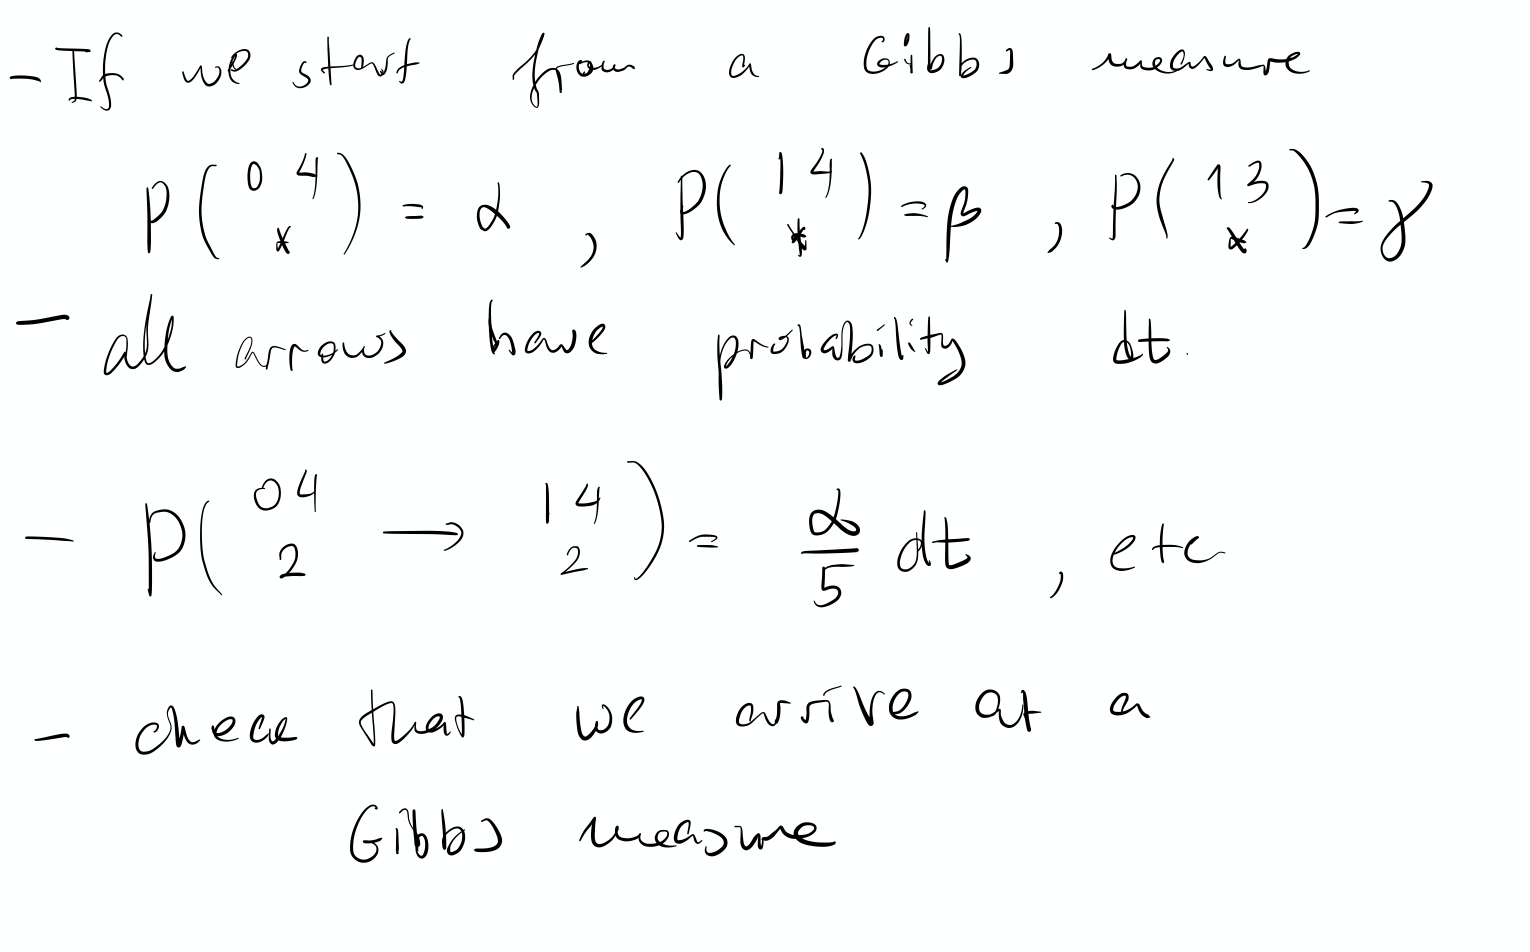 - If we start from a Gibbs measure
P(0 4 *) = α , P(1 4 *) = β , P(1 3 *) = γ
- all arrows have probability dt.
- P(0 4 2 → 1 4 2) = α/5 dt , etc
- check that we arrive at a
Gibbs measure